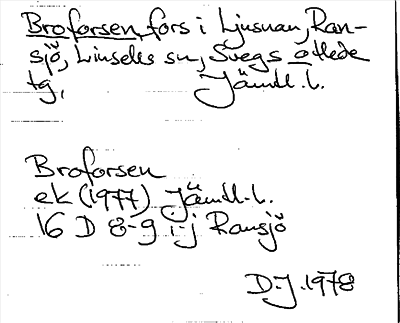 Broforsen, fors i Ljusnan, Ran-
sjö, Linsells sn, Svegs
tg, Jämtl. l.
Broforsen
ek (1977) Jämtl. l.
16 D 8-9 i-j Ransjö
D-J. 1978